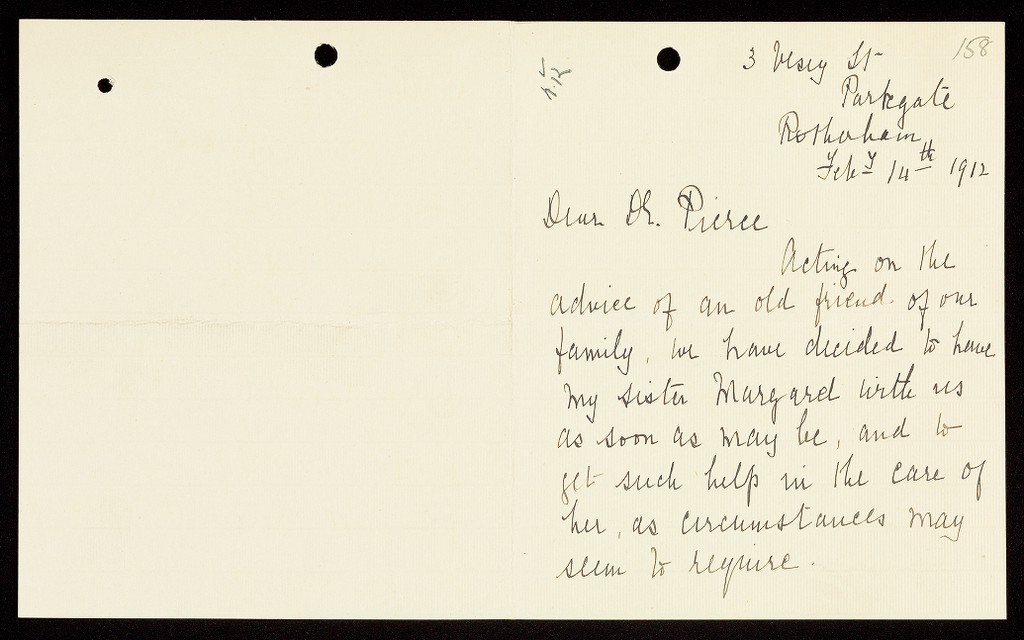 158
3 Vesey St
Parkgate
Rotherham
Feby 14th 1912
Dear Dr. Pierce
Acting on the
advice of an old friend of our
family, we have decided to have
my sister Margaret with us
as soon as may be, and to
get such help in the care of
her, as circumstances may
seem to require.